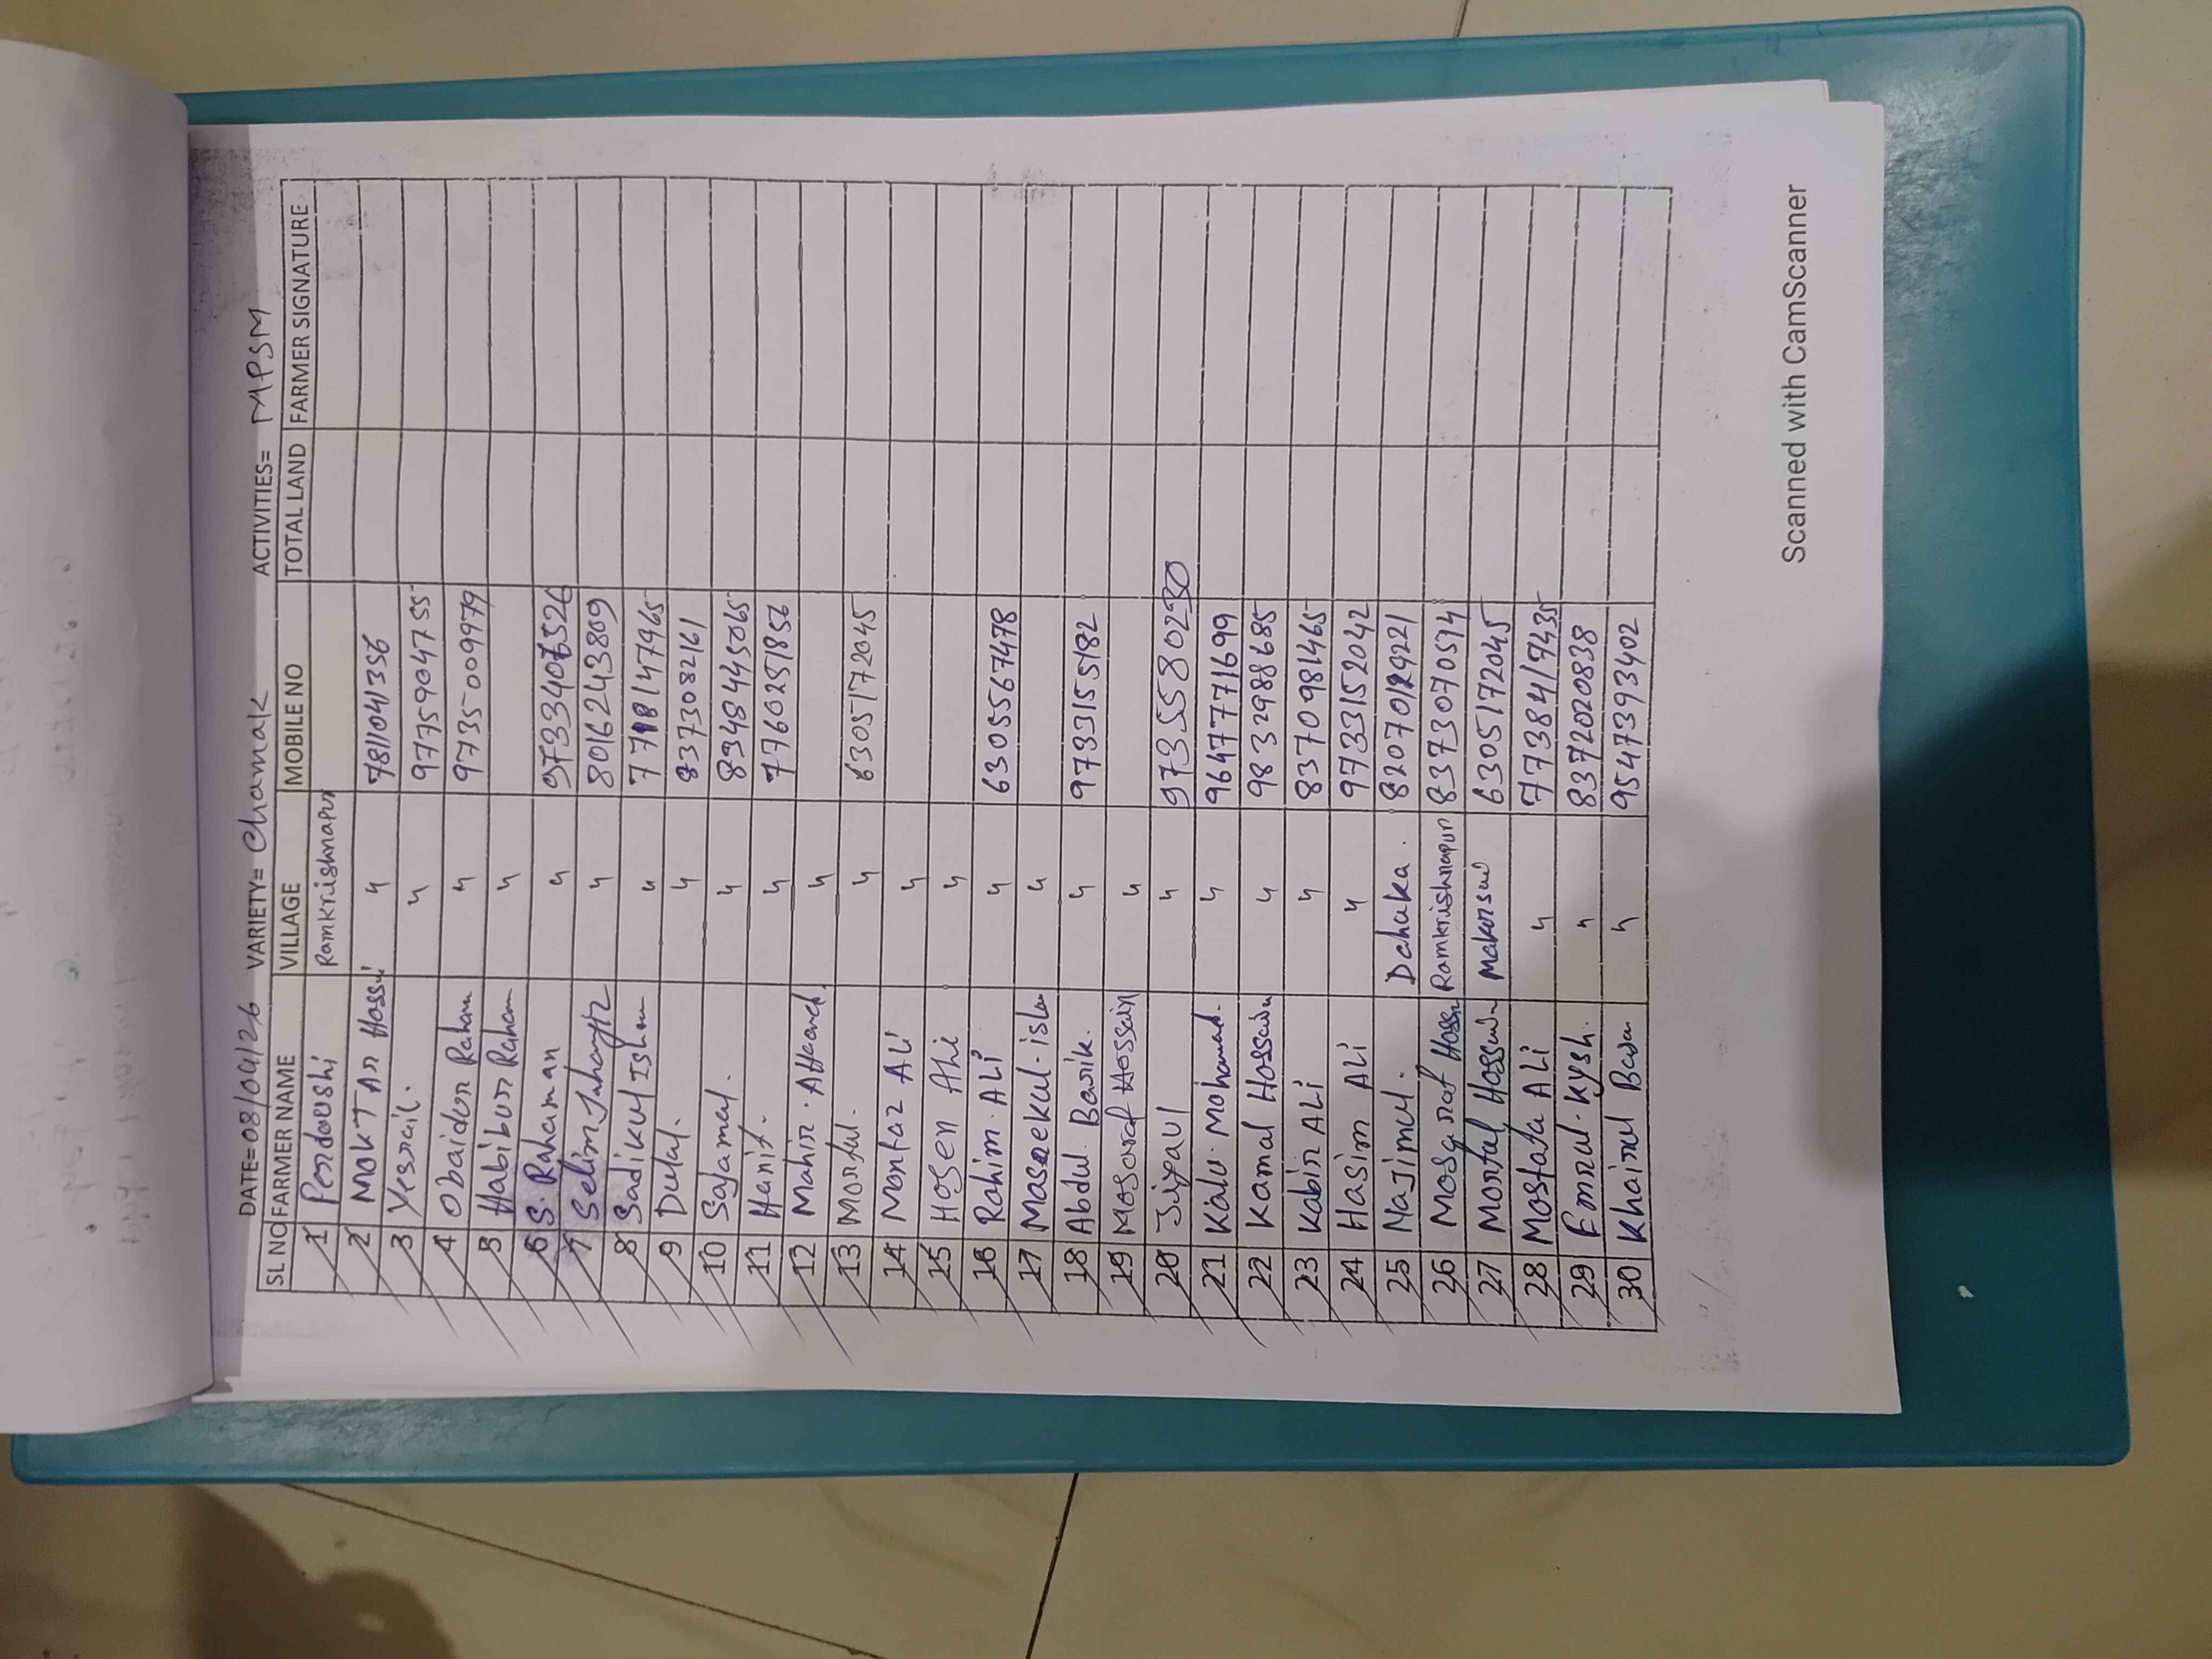 DATE=08/04/26 VARIETY= Chamak ACTIVITIES= MPSM
SL NO FARMER NAME VILLAGE MOBILE NO TOTAL LAND FARMER SIGNATURE
1 Ramkrishnapur
2 MOKTAR Hossi 〃 7811041356
3 Yesrail. 〃 9775904755
4 Obaidur Raham 〃 9735009979
5 Habibur Raham 〃
6 S. Rahaman 〃
7 Selim Jahangir 〃 8016243809
8 Sadikul Islam 〃
9 Dulal. 〃 8373082161
10 Sajamul. 〃 8948445065
11 Hanif. 〃 7760251856
12 Mahir. 〃
13 Morful. 〃 6305172045
14 Montaz ALi 〃
15 Hosen Ali 〃
16 Rahim. ALi 〃 6305567478
17 Masrekul. isla 〃
18 Abdul. Barik. 〃 9733155182
19 Mosaraf Hossain 〃
20 〃 9735580230
21 Kalu. Mohamad. 〃 9647771699
22 Kamal Hossain 〃 9832988685
23 Kabir ALi 〃 8370981465
24 Hasim ALi 〃 9733152042
25 Najimul. Dahuka.
26 Mosaraf Hossi Ramkrishnapur 8373070514
27 Morful Hossain 6305172045
28 Mostafa ALi 〃
29 〃 8372020838
30 Khairul 〃 9547393402
Scanned with CamScanner